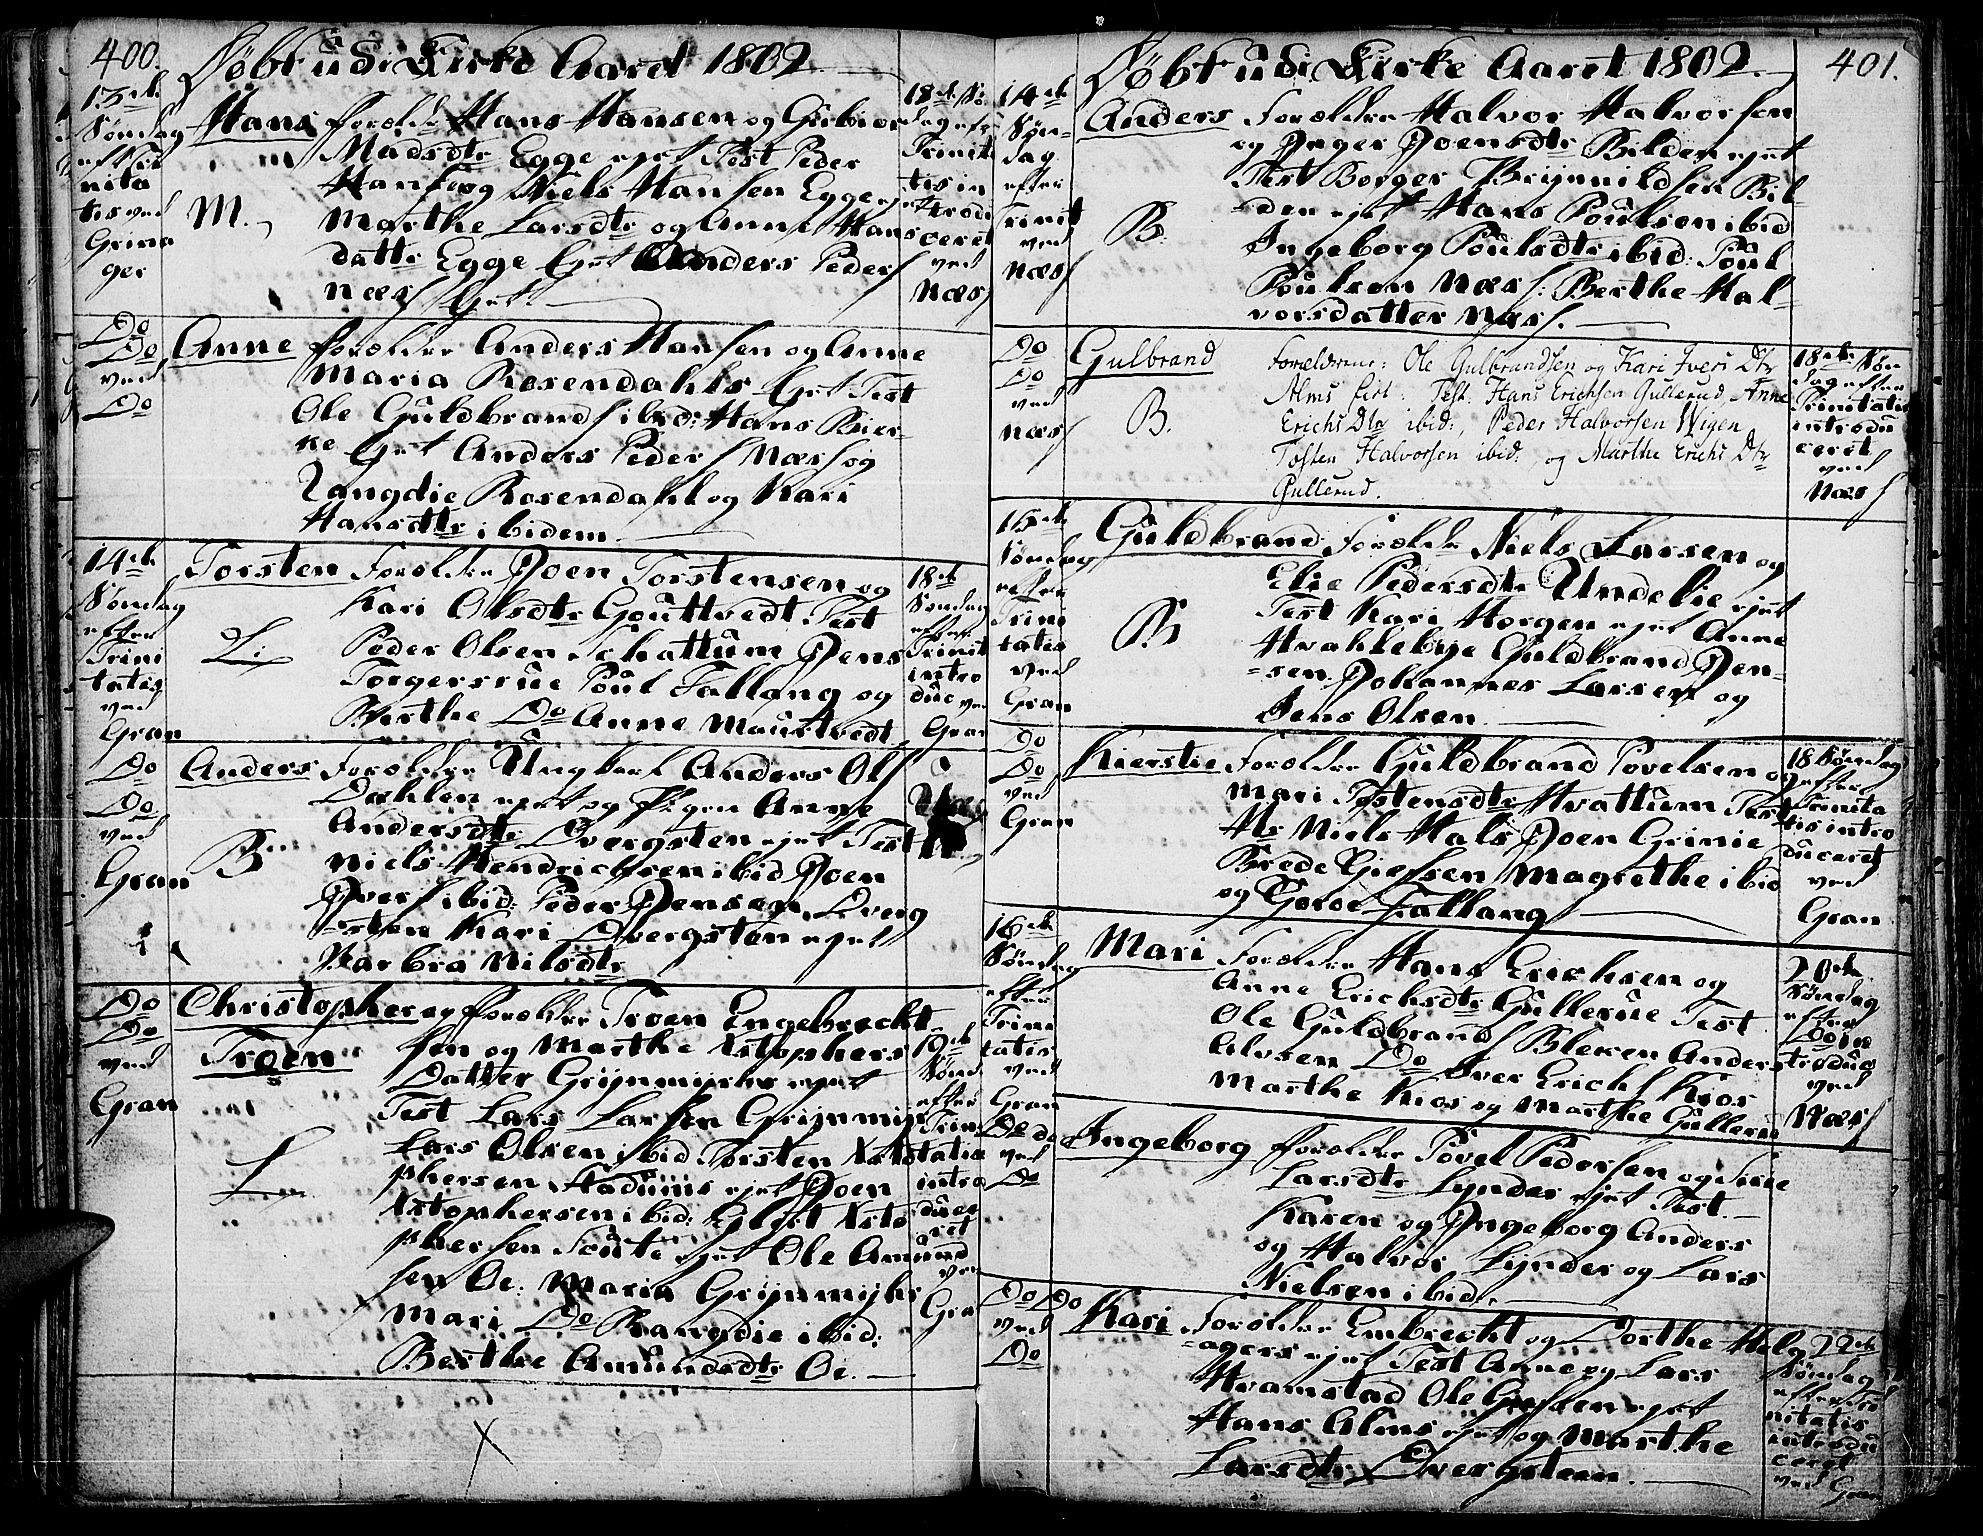 400.
Døbt udi Kirke Aaret 1802
13de
Søndag
efter Tri
nita
tis ved
Grina
ger
Hans
M.
foreldre Hans Hansen og
Madsdtr Egge ejet Test Peder
Hansen og Niels Hansen Egge
Marthe Larsdtr og Anne Hans
dattr Egge Anders Peders
næss
18de Sø
dag eft
Trinita
tis in
trodu
ceret
ved
Næss
Do
Do
ved
Do
Anne
foreldre Anders Hansen og Anne
Maria Rosendahls Test
Ole Guldbrands ibid: Hans Bier-
ke Anders Peders Næss og
Rangdie Rosendahl og Kari
Hansdtr ibidem
14de
Søndag
efter
Trini
tatis
ved
Gran
Torsten
L:
Foreldre Joen Torstensen og
Kari Olsdtr Gouttvedt Test
Peder Olsen Schattum Jens
Torgersrue Poul Fallang og
Berthe Do Anne Maurtvedt
18de
Søndag
efter
Trinit
intro
duc ved
Gran
Do
Do
ved
Gran
Anders
B
Foreldre Ungkarl Anders Ols
Dæhlen ejet og Pigen Anne
Andersdtr Dvergsten ejet Test
Niels Hendrichsen ibid Joen
Ivers ibid: Peder Jensen Dverg
sten Kari Dvergsten ejet
Barbra Nilsdtr
Do
Do
ved
Gran
Christopher og
Troen
L
foreldre Troen Engebrecht
sen og Marthe Xstophers
Datter Grijnmijhr ejet
Test Lars Larsen Grijnmijr
Lars Olsen ibid Torsten Xsto
phersen Hadums ejet Joen
Xstophersen ibid: Xsto
phersen ejet Ole Amund
sen Oe: Maria Grijnmijhr
Mari Do Rangdie ibid:
Berthe Amundsdtr Oe.
19de
Sønd
efter
Trini
tatis
intro
duce
ret
ved
Gran
X
401.
Døbt udi Kirke Aaret 1802.
14de
Søn-
dag
efter
Trinit
ved
Næss
Anders
B.
Foreldre Halvor Halvorsen
og Inger Joensdtr Bilden ejet
Test Borger Brijnnildsen Bil-
den ejet Hans Poulsen ibid
Ingeborg Poulsdtr ibid: Poul
Poulsen Næss: Berthe Hal-
vorsdatter Næss.
Do
Do
ved
Næss
Gulbrand
B.
Forældrene: Ole Gulbrandsen og Kari Ivers Dtr
Alms Eiet: Test: Hans Erichsen Gullerud, Anne
Erichs Dtr ibid:, Peder Halvorsen Wigen
Tosten Halvorsen ibid:, og Marthe Erichs Dtr
Gullerud.
18de Søn
dag efter
Trinitatis
introdu
ceret
ved
Næss
Søndag
efter
Trini
tatis
ved
Gran
Guldbrand
B.
foreldre Niels Larsen og
Elie Pedersdtr Undelie ejet
Test Kari Horgen ejet Anne
Hvahlebye Guldbrand Jen-
sen Johannes Larsen og
Jens Olsen
Do
Do
ved
Gran
Kierstie
Foreldre Guldbrand Povelsen og
Mari Tostensdtr Hvattum Test
Hr Niels Hals Joen Grinie
Brede Magrethe ibid
og Goroe Fallang
18 Søndag
efter
Trinita
tis intro
duceret
ved
Gran
16de
Søndag
efter
Trini
tatis
ved
Gran
Mari
Foreldre Hans Erichsen og
Anne Erichsdtr Gullerue Test
Ole Guldbrands Bleken Anders
Alvsen Do Iver Erichs Kios
Marthe Kios og Marthe Gullerue
20de
Søndag
efter
Do in
troduce
ved
Næss
Do do
ved
Do
Ingeborg
foreldre Povel Pedersen og Sirie
Larsdtr Lynder ejet Test.
Karen og Ingeborg Anders
og Halvor Lynder og Lars
Nielsen ibid.
Do Do
ved
Do
Kari
foreldre Embrecht og Dorthe Helg
agers ejet Test Anne og Lars
Hvamstad Ole ejet
Hans Alms ejet og Marthe
Larsdtr Dvergsteen.
22de
Søndag
efter Tri
nitatis
introdu
ceret
ved Gran